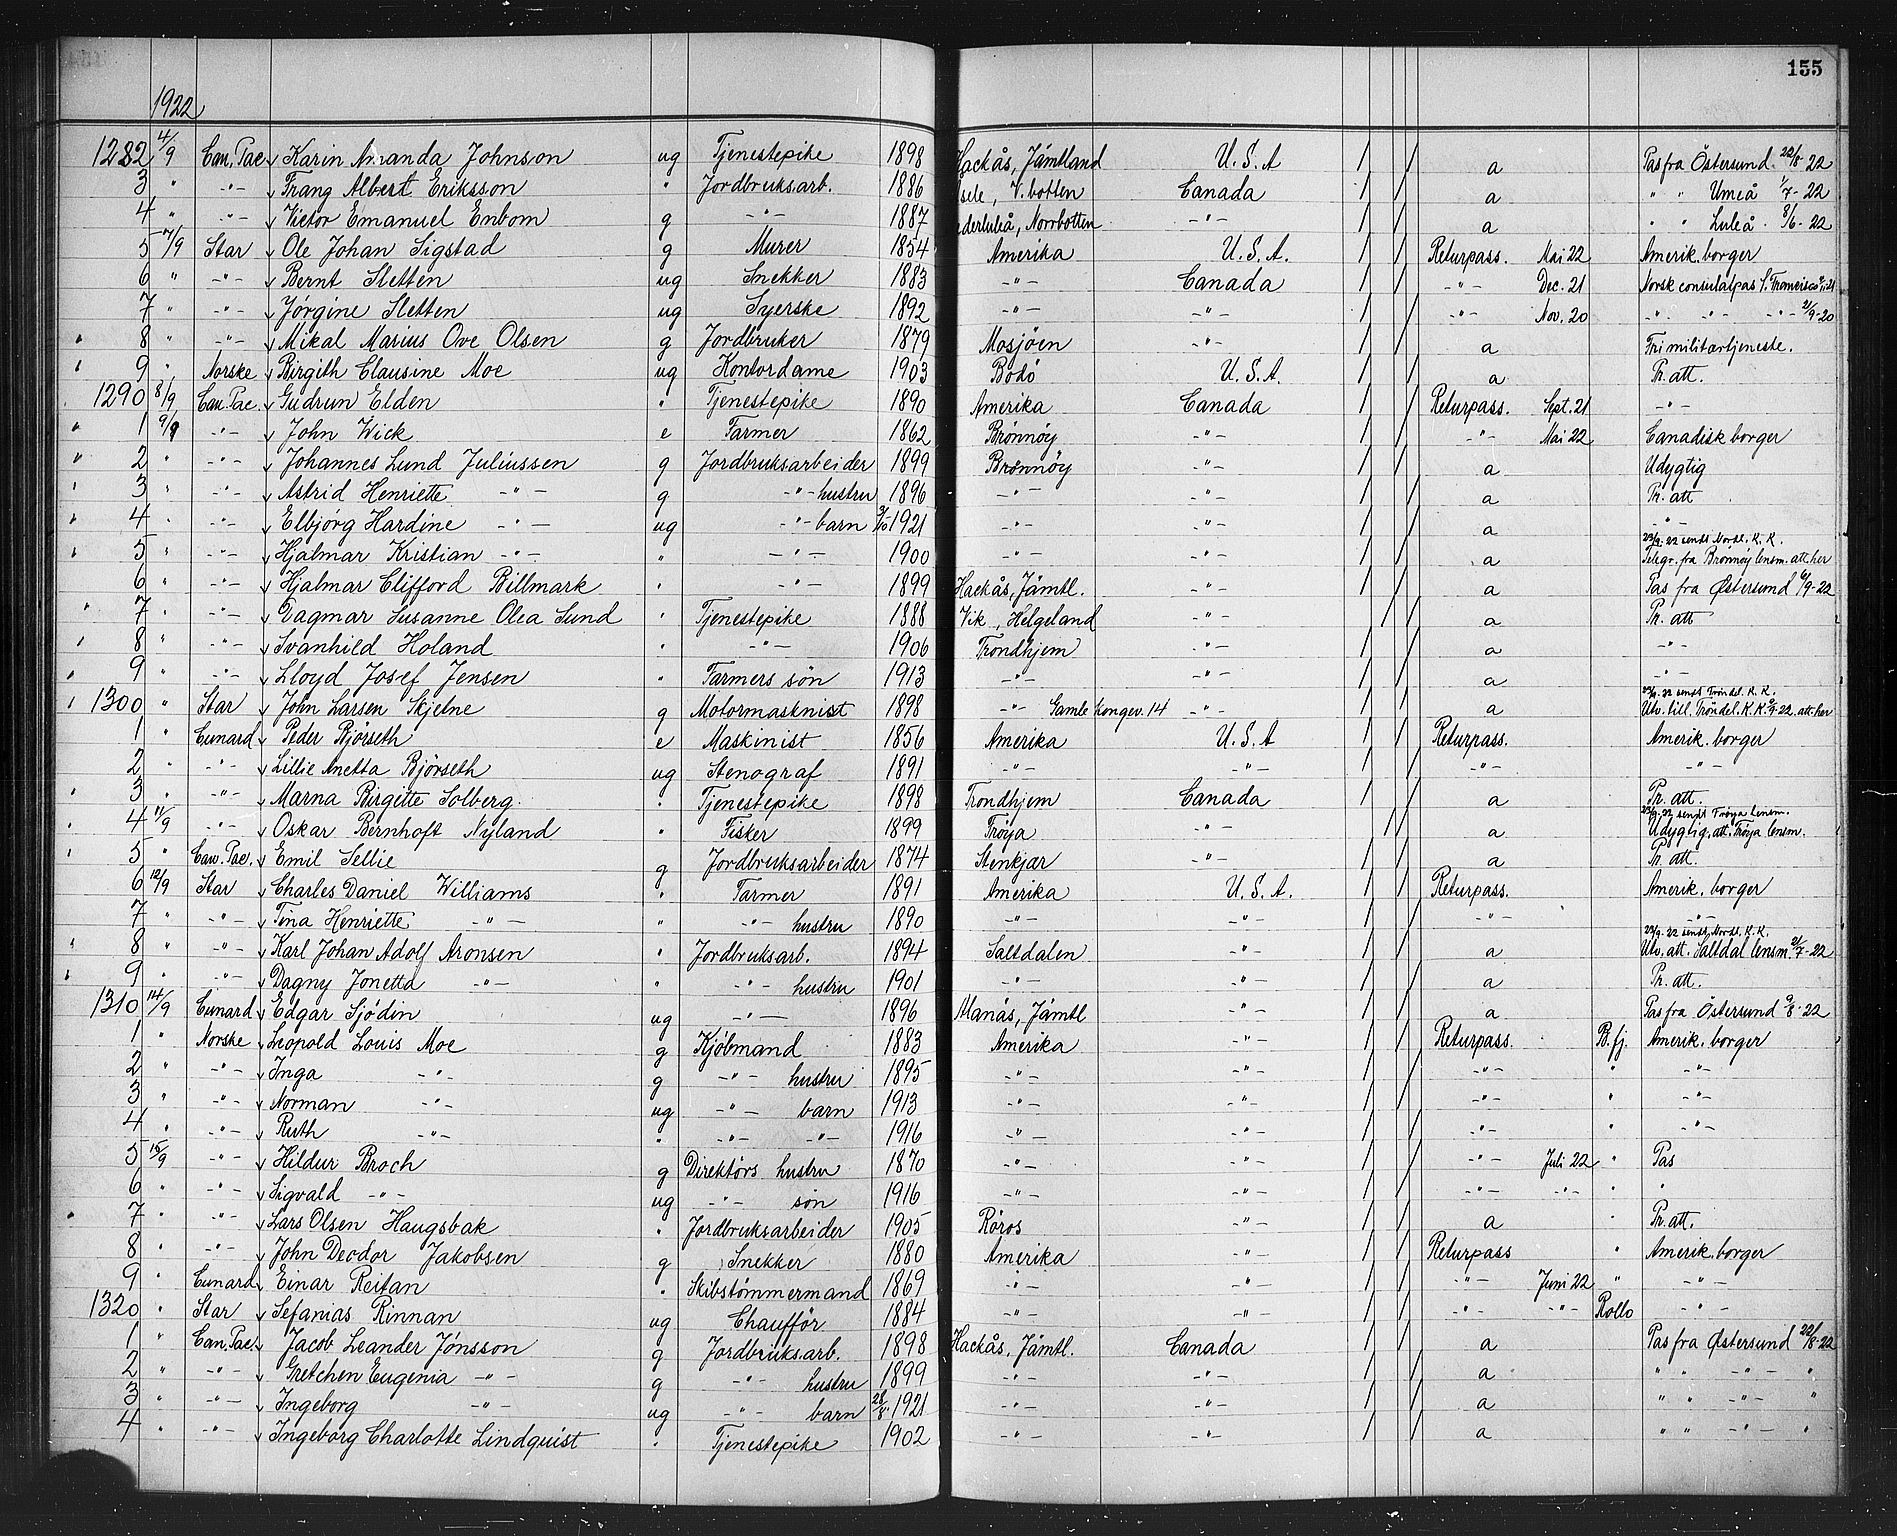 155
1922
1282 4/9 Can. Pac. Karin Amanda Johnson ug Tjenestepike 1898 Hackås, Jämtland U.S.A a Pas fra Östersund 22/8-22
3 " -"- Frang Albert Eriksson " Jordbruksarb. 1886 sele, V. botten Canada a " " Umeå 1/7-22
4 " -"- Victor Emanuel Enbom g -"- 1887 derluleå, Norrbotten -"- a " " Luleå 8/6-22
5 7/9 Star Ole Johan Sigstad g Murer 1854 Amerika U.S.A. Returpass. Mai 22 Amerik. borger
6 " -"- Bernt Sletten ug Snekker 1883 -"- Canada -"- Dec. 21 Norsk consulatpas S. Francisco
7 " -"- Jörgine Sletten ug Syerske 1892 -"- -"- -"- Nov. 20 -"- " -"- 21/9-20
8 " -"- Mikal Marius Ove Olsen g Jordbruker 1879 Mosjöen -"- a Fri militærtjeneste.
9 " Norske Birgith Clausine Moe ug Kontordame 1903 Bodö U.S.A. a Pr. att.
1290 8/9 Can. Pac. Gudrun Elden " Tjenestepike 1890 Amerika Canada Returpass. Sept. 21 -"-
1 9/9 -"- John Wick e Farmer 1862 Brönnöy -"- -"- Mai 22 Canadisk borger
2 " -"- Johannes Lund Juliussen g Jordbruksarbeider 1899 Brønnöy -"- a Udygtig
3 " -"- Astrid Henriette -"- g -"- hustru 1896 -"- -"- a Pr. att
4 " -"- Elbjörg Hardine -"- ug -"- barn 3/10 1921 -"- -"- a -"-
5 " -"- Hjalmar Kristian -"- " -"- 1900 -"- -"- a 23/9.22 sendt Nordl. K. K. Telegr. fra Brønnöy lensm. att. her
6 " -"- Hjalmar Clifford Billmark " -"- 1899 Hackås, Jämtl. -"- a Pas fra Østersund 6/9-22
7 " -"- Dagmar Susanne Olea Sund " Tjenestepike 1888 Vik, Helgeland -"- a Pr. att
8 " -"- Svanhild Holand " -"- 1906 Trondhjem -"- a -"-
9 " -"- Lloyd Josef Jensen " Farmers sön 1913 -"- -"- a -"-
1300 " Star John Larsen Skjelne g Motormasknist 1898 -"- Gamle Kongev. 14 -"- a 23/9.22 sendt Tröndel. K. K. Utv. till. Tröndel. K. K. 2/9-22. att. her
1 " Cunard Peder Björseth e Maskinist 1856 Amerika U.S.A Returpass. Amerik. borger
2 " -"- Lillie Anetta Björseth ug Stenograf 1891 -"- -"- -"- -"-
3 " -"- Marna Birgitte Solberg. " Tjenestepike 1898 Trondhjem Canada a Pr. att.
4 11/9 -"- Oskar Bernhoft Nyland " Fisker 1899 Fröya -"- a 23/9.22 sendt Fröya lensm. Udygtig, att. Fröya lensm.
5 " Can. Pac. Emil Sellie g Jordbruksarbeider 1874 Stenkjær -"- a Pr. att.
6 12/9 Star Charles Daniel Williams " Farmer 1891 Amerika U.S.A. Returpass. Amerik. borger
7 " -"- Tina Henriette -"- " -"- hustru 1890 -"- -"- -"- -"-
8 " -"- Karl Johan Adolf Aronsen " Jordbruksarb. 1894 Saltdalen -"- a 23/9.22 sendt Nordl. K. K. Utv. att. Saltdal lensm. 21/7-22
9 " -"- Dagny Jonetta -"- " -"- hustru 1901 -"- -"- a Pr. att.
1310 14/9 Cunard Edgar Sjödin ug -"- 1896 Manås, Jämtl -"- a Pas fra Östersund 9/8-22
1 " Norske Leopold Louis Moe g Kjöbmand 1883 Amerika -"- Returpass. B.fj. Amerik. borger
2 " -"- Inga -"- g -"- hustru 1895 -"- -"- -"- " -"-
3 " -"- Norman -"- ug -"- barn 1913 -"- -"- -"- " -"-
4 " -"- Ruth -"- " -"- -"- 1916 -"- -"- -"- " -"-
5 15/9 -"- Hildur Broch g Direktörs hustru 1870 -"- -"- -"- Juli 22 " Pas
6 " -"- Sigvald -"- ug -"- sön 1916 -"- -"- -"- -"- " "
7 " -"- Lars Olsen Haugsbak " Jordbruksarbeider 1905 Röros -"- a " Pr. att.
8 " -"- John Deodor Jakobsen g Snekker 1880 Amerika -"- Returpass " Amerik. borger
9 " Cunard Einar Reitan " Skibstömmermand 1869 -"- -"- -"- Juni 22 " -"-
1320 " Star Sefanias Rinnan ug Chaufför 1884 -"- -"- -"- -"- Rollo -"-
1 " Can. Pac. Jacob Leander Jönsson g Jordbruksarb. 1898 Hackås, Jämtl. Canada a Pas fra Østersund 22/8-22
2 " -"- Gretchen Eugenia -"- g -"- hustru 1899 -"- -"- a " " -"- "
3 " -"- Ingeborg -"- ug -"- barn 28/8 1921 -"- -"- a " " -"- "
4 " -"- Ingeborg Charlotte Lindquist " Tjenestepike 1902 -"- -"- a " " -"- "